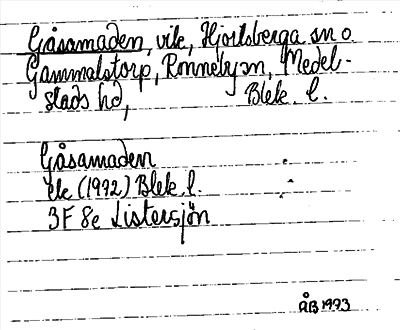 Gåsamaden, vik, Hjortsberga sn o.
Gammalstorp, Ronneby sn, Medel-
stads hd, Blek. l.
Gåsamaden
ek (1992) Blek. l.
3F 8e Listersjön
ÅB 1993